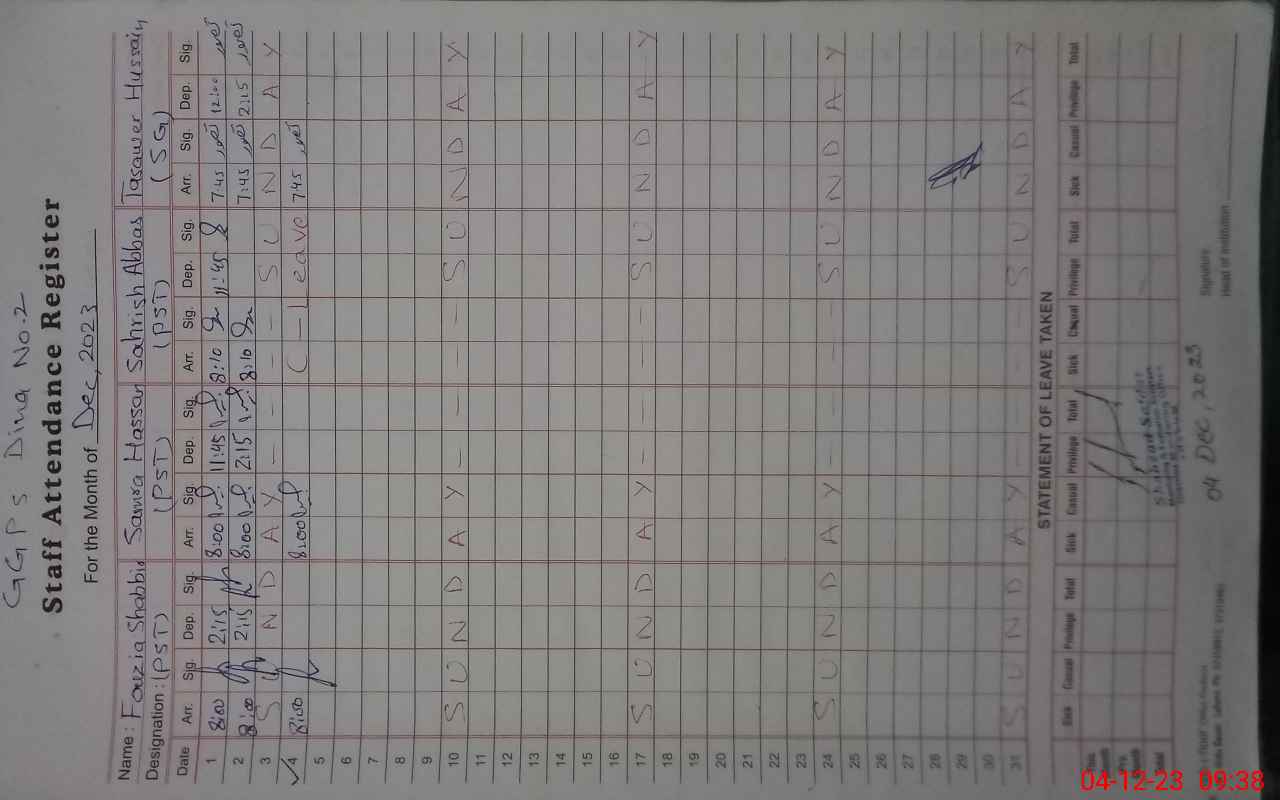 GGPS Dina No.2
Staff Attendance Register
For the Month of Dec, 2023
Name : Fouzia Shabbir Samra Hassan Sahrish Abbas Tasawer Hussain
Designation : (PST) (PST) (PST) (SG)
Date Arr. Sig. Dep. Sig. Arr. Sig. Dep. Sig. Arr. Sig. Dep. Sig. Arr. Sig. Dep. Sig.
1 8:00 2:15 8:00 11:45 8:10 11:45 7:45 12:00
2 8:00 2:15 8:00 2:15 8:10 7:45 2:15
3 S U N D A Y - - - S U N D A Y
4 8:00 8:00 C - Leave 7:45
5
6
7
8
9
10 S U N D A Y - - - - S U N D A Y
11
12
13
14
15
16
17 S U N D A Y - - - - S U N D A Y
18
19
20
21
22
23
24 S U N D A Y - - - - S U N D A Y
25
26
27
28
29
30
31 S U N D A Y - - - - S U N D A Y
STATEMENT OF LEAVE TAKEN
Sick Casual Privilege Total Sick Casual Privilege Total Sick Casual Privilege Total Sick Casual Privilege Total
Total
04 DEC, 2023
Signature
Head of Institution
04-12-23 09:38